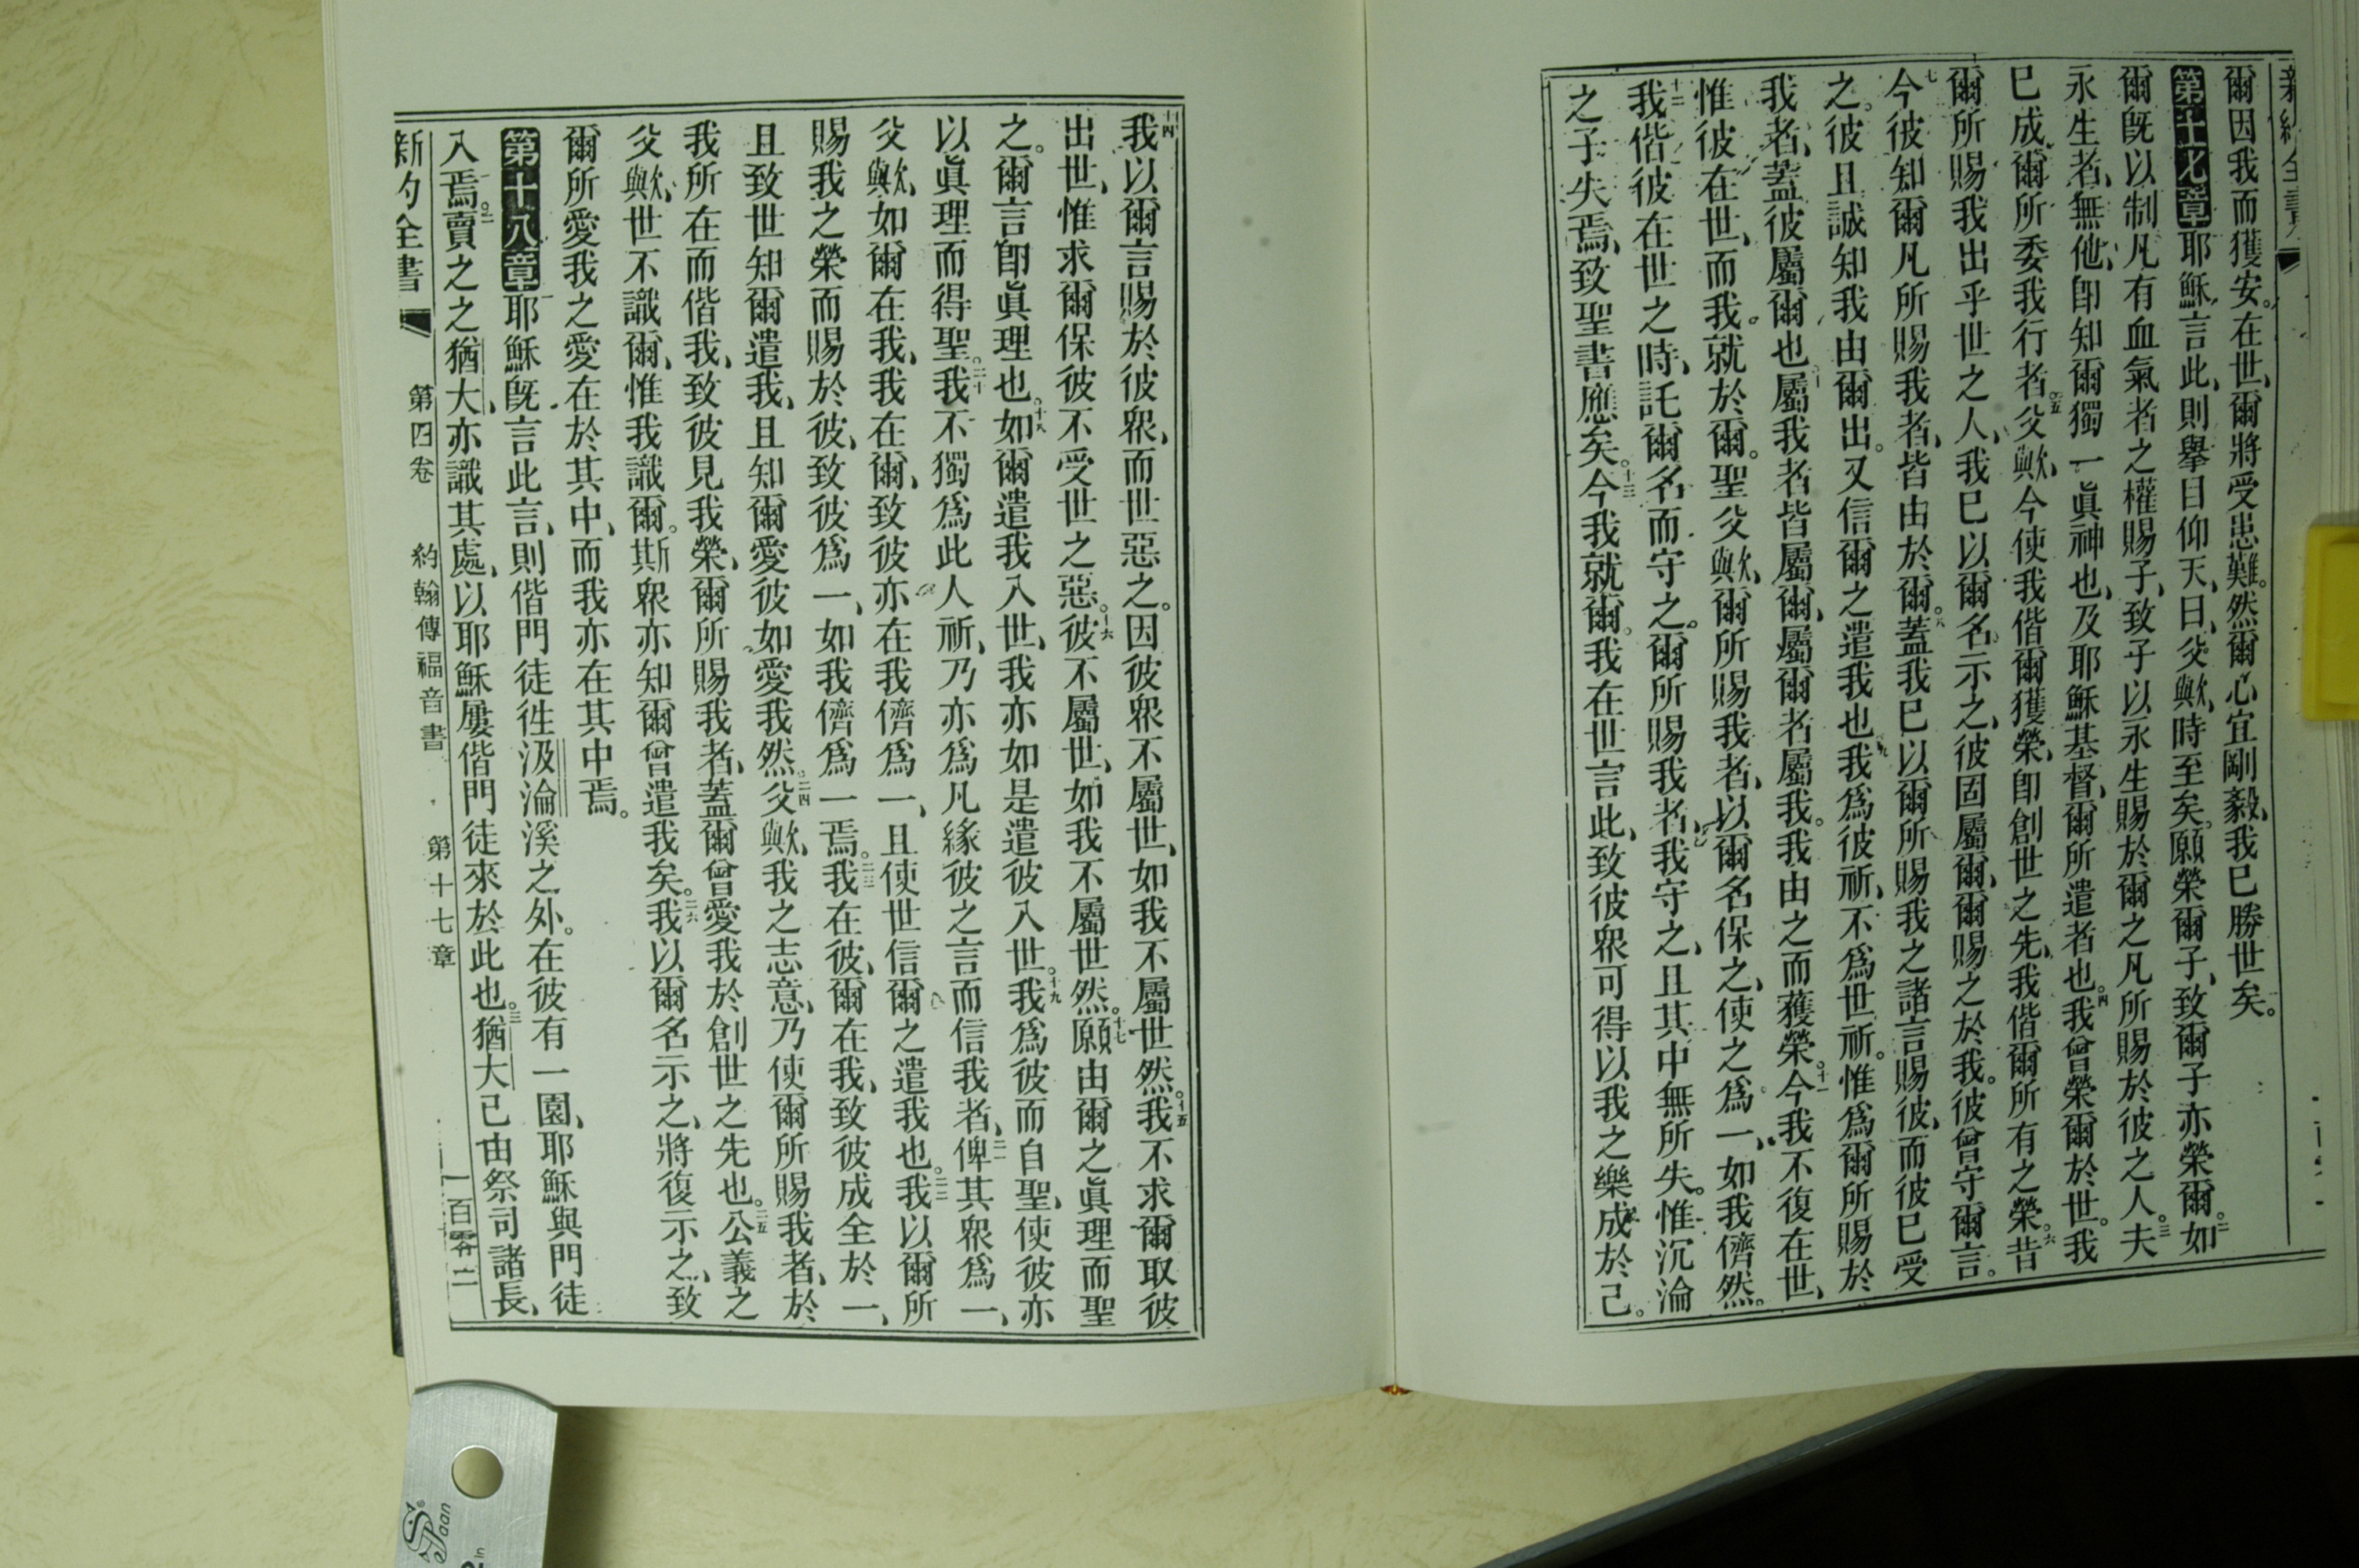 新約全書
爾因我而獲安。在世、爾將受患難。然爾心宜剛毅、我已勝世矣。
第十七章耶穌言此、則舉目仰天、曰、父歟、時至矣。願榮爾子、致爾子亦榮爾。二如
爾既以制凡有血氣者之權賜子、致子以永生賜於爾之凡所賜於彼之人。三夫
永生者、無他、卽知爾獨一眞神也、及耶穌基督、爾所遣者也。四我曾榮爾於世。我
已成爾所委我行者。五父歟、今使我偕爾獲榮、卽創世之先、我偕爾所有之榮。六昔
爾所賜我出乎世之人、我已以爾名示之、彼固屬爾、爾賜之於我。彼曾守爾言。
七今彼知爾凡所賜我者、皆由於爾。八蓋我已以爾所賜我之諸言賜彼、而彼已受
之。彼且誠知我由爾出。又信爾之遣我也。九我爲彼祈、不爲世祈。惟爲爾所賜於
我者、蓋彼屬爾也。十屬我者皆屬爾、屬爾者屬我。我由之而獲榮。十一今我不復在世、
惟彼在世、而我就於爾。聖父歟、爾所賜我者、以爾名保之、使之爲一、如我儕然。
十二我偕彼在世之時、託爾名而守之。爾所賜我者、我守之、且其中無所失。惟沉淪
之子失焉、致聖書應矣。十三今我就爾。我在世言此、致彼衆可得以我之樂成於己。
十四我以爾言賜於彼衆、而世惡之。因彼衆不屬世、如我不屬世然。十五我不求爾取彼
出世、惟求爾保彼不受世之惡。十六彼不屬世、如我不屬世然。十七願由爾之眞理而聖
之。爾言卽眞理也。十八如爾遣我入世、我亦如是遣彼入世。十九我爲彼而自聖、使彼亦
以眞理而得聖。二十我不獨爲此人祈、乃亦爲凡緣彼之言而信我者、二一俾其衆爲一、
父歟、如爾在我、我在爾、致彼亦在我儕爲一、且使世信爾之遣我也。二二我以爾所
賜我之榮而賜於彼、致彼爲一、如我儕爲一焉。二三我在彼、爾在我、致彼成全於一、
且致世知爾遣我、且知爾愛彼如愛我然。二四父歟、我之志意、乃使爾所賜我者、於
我所在而偕我、致彼見我榮、爾所賜我者、蓋爾曾愛我於創世之先也。二五公義之
父歟、世不識爾、惟我識爾。斯衆亦知爾曾遣我矣。二六我以爾名示之、將復示之、致
爾所愛我之愛在於其中、而我亦在其中焉。
第十八章一耶穌既言此言、則偕門徒往汲淪溪之外。在彼有一園、耶穌與門徒
入焉。二賣之之猶大、亦識其處、以耶穌屢偕門徒來於此也。三猶大已由祭司諸長、
新約全書 第四卷 約翰傳福音書 第十七章 一百零二